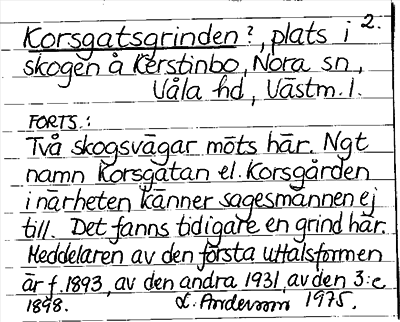 2.
Korsgatsgrinden?, plats i
skogen å Kerstinbo, Nora sn,
Våla hd, Västm. l.
FORTS.:
Två skogsvägar möts här. Ngt
namn Korsgatan el. Korsgården
i närheten känner sagesmannen ej
till. Det fanns tidigare en grind här.
Meddelaren av den första uttalsformen
är f. 1893, av den andra 1931, av den 3:e
1898. L. Andersson 1975.